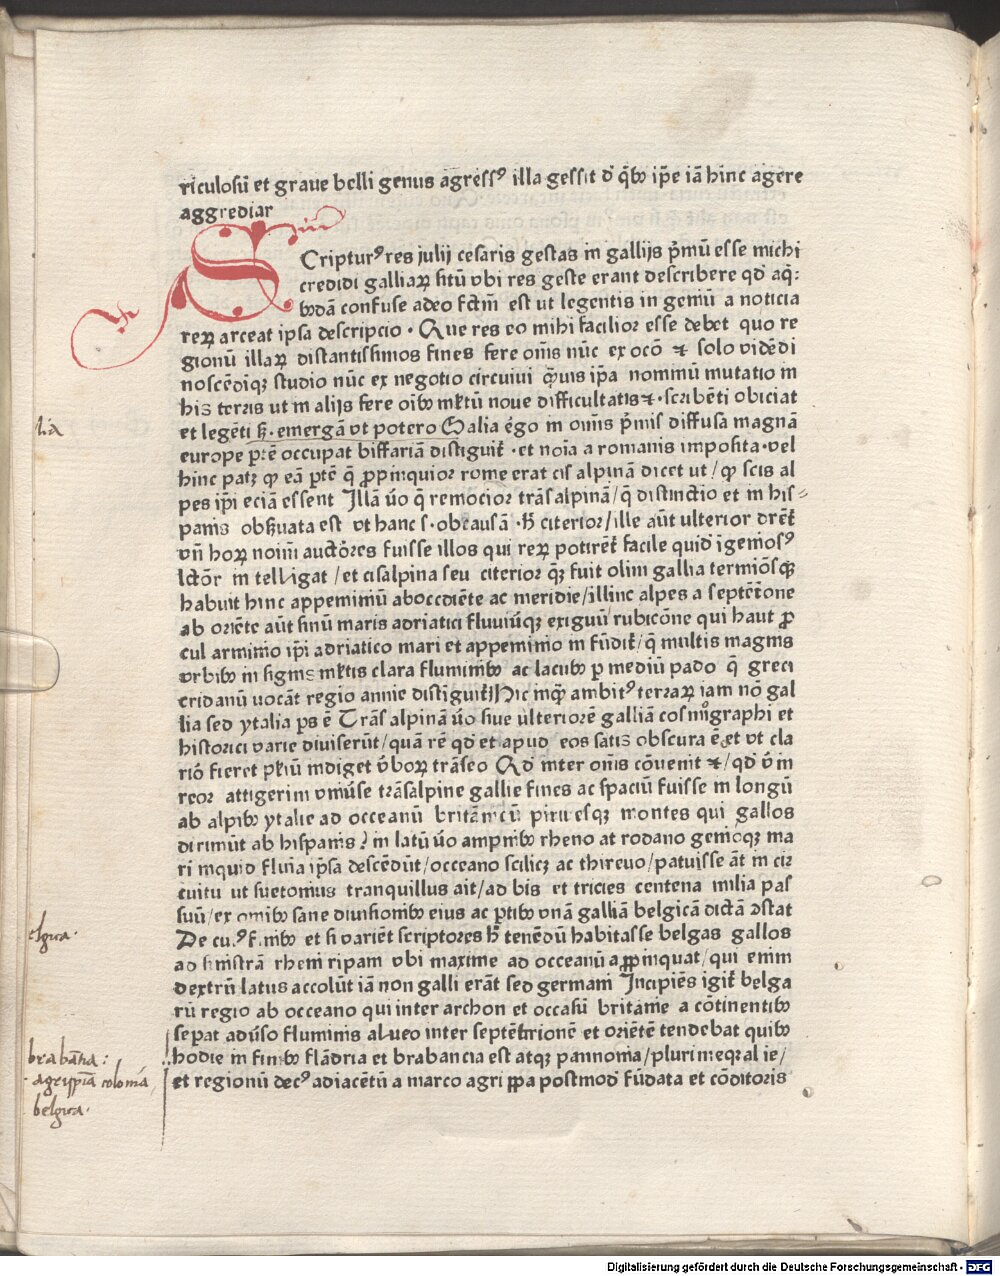 riculosū et graue belli genus agress⁹ illa gessit d' q̄bꝫ ip̄e iā hinc agere
aggrediar
SCriptur⁹ res julij cesaris gestas in gallijs p̄mū esse michi
credidi galliaꝝ sitū vbi res geste erant describere qd̓ aq̄:
bꝫdā confuse adeo fctm̄ est ut legentis in geniū a noticia
reꝝ arceat ipsa descripcio · Que res eo mihi facilior esse debet quo re
gionū illaꝝ distantissimos fines fere om̄s nūc ex ocō ⁊ solo vidēdi
noscēdiqꝫ studio nūc ex negotio circuiui q̄uis ip̄a nominū mutatio in
his terris ut in alijs fere oībꝫ mltū noue difficultatis ⁊ · scribēti obiciat
et legēti · emergā vt potero Galia ergo in om̄is p̄mis diffusa magnā
europe ptē occupat biffariā distiguit · et noīa a romanis imposita · vel
hinc patꝫ ꝙ eā ptē q̄ ꝓpinquior rome erat cis alpinā dicet ut / ꝙ scis al
pes ip̄i eciā essent Illā ū̓o q̄ remocior trās alpinā / q̄ distinctio et in his⸗
panis obs̓uata est vt hanc s · ob causā · h̓ citerior / ille aūt ulterior dret̓
vn̄ hoꝝ noīm auctōres fuisse illos qui reꝝ potiret̓ facile quid̓ īgeniōs⁹
lctōr in telligat / et cisalpina seu citerior q̄ꝫ fuit olim gallia termiōsqꝫ
habuit hinc appeminū aboccdiēte ac meridie / illinc alpes a septēt̓one
ab oriēte aūt sinū maris adriatici fluuiūqꝫ exiguū rubicōne qui haut ꝓ
cul arminio ip̄i adriatico mari et appeminio in fūdit̓ / q̄ multis magnis
vrbibꝫ in signis mltis clara fluminibꝫ ac lacubꝫ p mediū pado q̄ greci
eridanū uocāt regio annie distiguit̓ Hic inq̄ ambit⁹ terraꝝ iam nō gal
lia sed ytalia ps ē Trās alpinā ū̓o siue ulteriorē galliā cosmographi et
historici varie diuiserūt / quā rē qd̓ et apud eos satis obscura ē et vt cla
riō fieret plꝛiū indiget v̓boꝝ trāseo Ad inter om̄s cōuenit ⁊ / qd̓ v̓m
reor attigerini vniū̓se trāsalpine gallie fines ac spaciū fuisse in longū
ab alpibꝫ ytalie ad occeanū britānicū pirinesqꝫ montes qui gallos
dirimūt ab hispanis ? in latū ū̓o ampnibꝫ rheno at rodano gemōqꝫ ma
ri inquid fluīa ip̄sa descēdūt / occeano scilicꝫ ac thireuo / patuisse āt in cir
cuitu ut suetonius tranquillus ait / ad bis et tricies centena milia pas
suū / ex omībꝫ sane diuisionibꝫ eius ac ptibꝫ vnā galliā belgicā dictā ꝯstat
De cu⁹ finibꝫ et si variēt scriptores h̓ tenēdū habitasse belgas gallos
ad sinistrā rheni ripam vbi maxime ad occeanū aꝓpinquat / qui enim
dextrū latus accolūt iā non galli erāt sed germani Incipiēs igit̓ belga
rū regio ab occeano qui inter archon et occasū britanie a cōtinentibꝫ
sepat adū̓so fluminis alueo inter septētrionē et oriētē tendebat quibꝫ
hodie in finibꝫ flādria et brabancia est atqꝫ pannonia / plurimeqꝫ alie /
et regionū dec⁹ adiacētū a marco agrippa postmod̓ fūdata et cōditoris
lia
elgica.
brabātia:
agrippīa colonia
belgica.
Digitalisierung gefördert durch die Deutsche Forschungsgemeinschaft - DFG